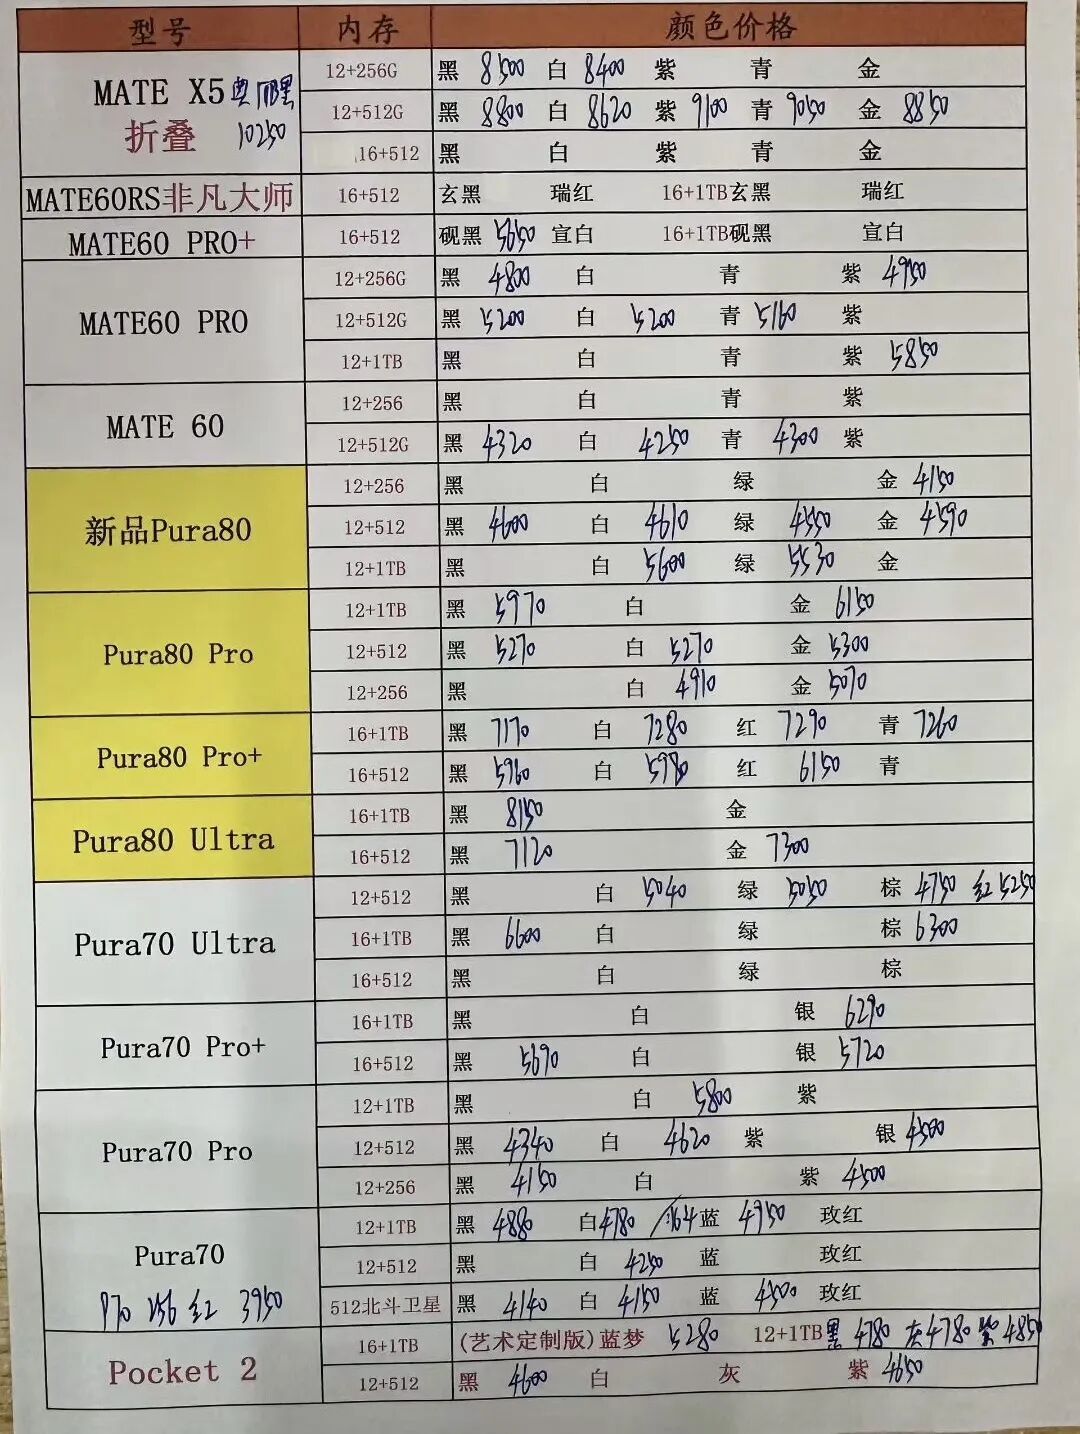 型号 内存 颜色价格
MATE X5 奥丽黑 12+256G 黑 8500 白 8400 紫 青 金
折叠 10250 12+512G 黑 8800 白 8620 紫 9100 青 9050 金 8850
16+512 黑 白 紫 青 金
MATE60RS非凡大师 16+512 玄黑 瑞红 16+1TB玄黑 瑞红
MATE60 PRO+ 16+512 砚黑 5650 宣白 16+1TB砚黑 宣白
MATE60 PRO 12+256G 黑 4800 白 青 紫 4950
12+512G 黑 5200 白 5200 青 5160 紫
12+1TB 黑 白 青 紫 5850
MATE 60 12+256 黑 白 青 紫
12+512G 黑 4320 白 4250 青 4300 紫
新品Pura80 12+256 黑 白 绿 金 4150
12+512 黑 4600 白 4610 绿 4550 金 4590
12+1TB 黑 白 5600 绿 5530 金
Pura80 Pro 12+1TB 黑 5970 白 金 6150
12+512 黑 5270 白 5270 金 5300
12+256 黑 白 4910 金 5070
Pura80 Pro+ 16+1TB 黑 7170 白 7280 红 7290 青 7260
16+512 黑 5960 白 5980 红 6150 青
Pura80 Ultra 16+1TB 黑 8150 金
16+512 黑 7120 金 7300
Pura70 Ultra 12+512 黑 白 5040 绿 5050 棕 4750 红 5250
16+1TB 黑 6600 白 绿 棕 6300
16+512 黑 白 绿 棕
Pura70 Pro+ 16+1TB 黑 白 银 6290
16+512 黑 5690 白 银 5720
Pura70 Pro 12+1TB 黑 白 5800 紫
12+512 黑 4340 白 4620 紫 银 4500
12+256 黑 4150 白 紫 4500
Pura70 12+1TB 黑 4880 白 4780 蓝 4950 玫红
12+512 黑 白 4250 蓝 玫红
P70 256 红 3950 512北斗卫星 黑 4140 白 4150 蓝 4300 玫红
Pocket 2 16+1TB (艺术定制版)蓝梦 5280 12+1TB 黑 4780 灰 4780 紫 4850
12+512 黑 4600 白 灰 紫 4650